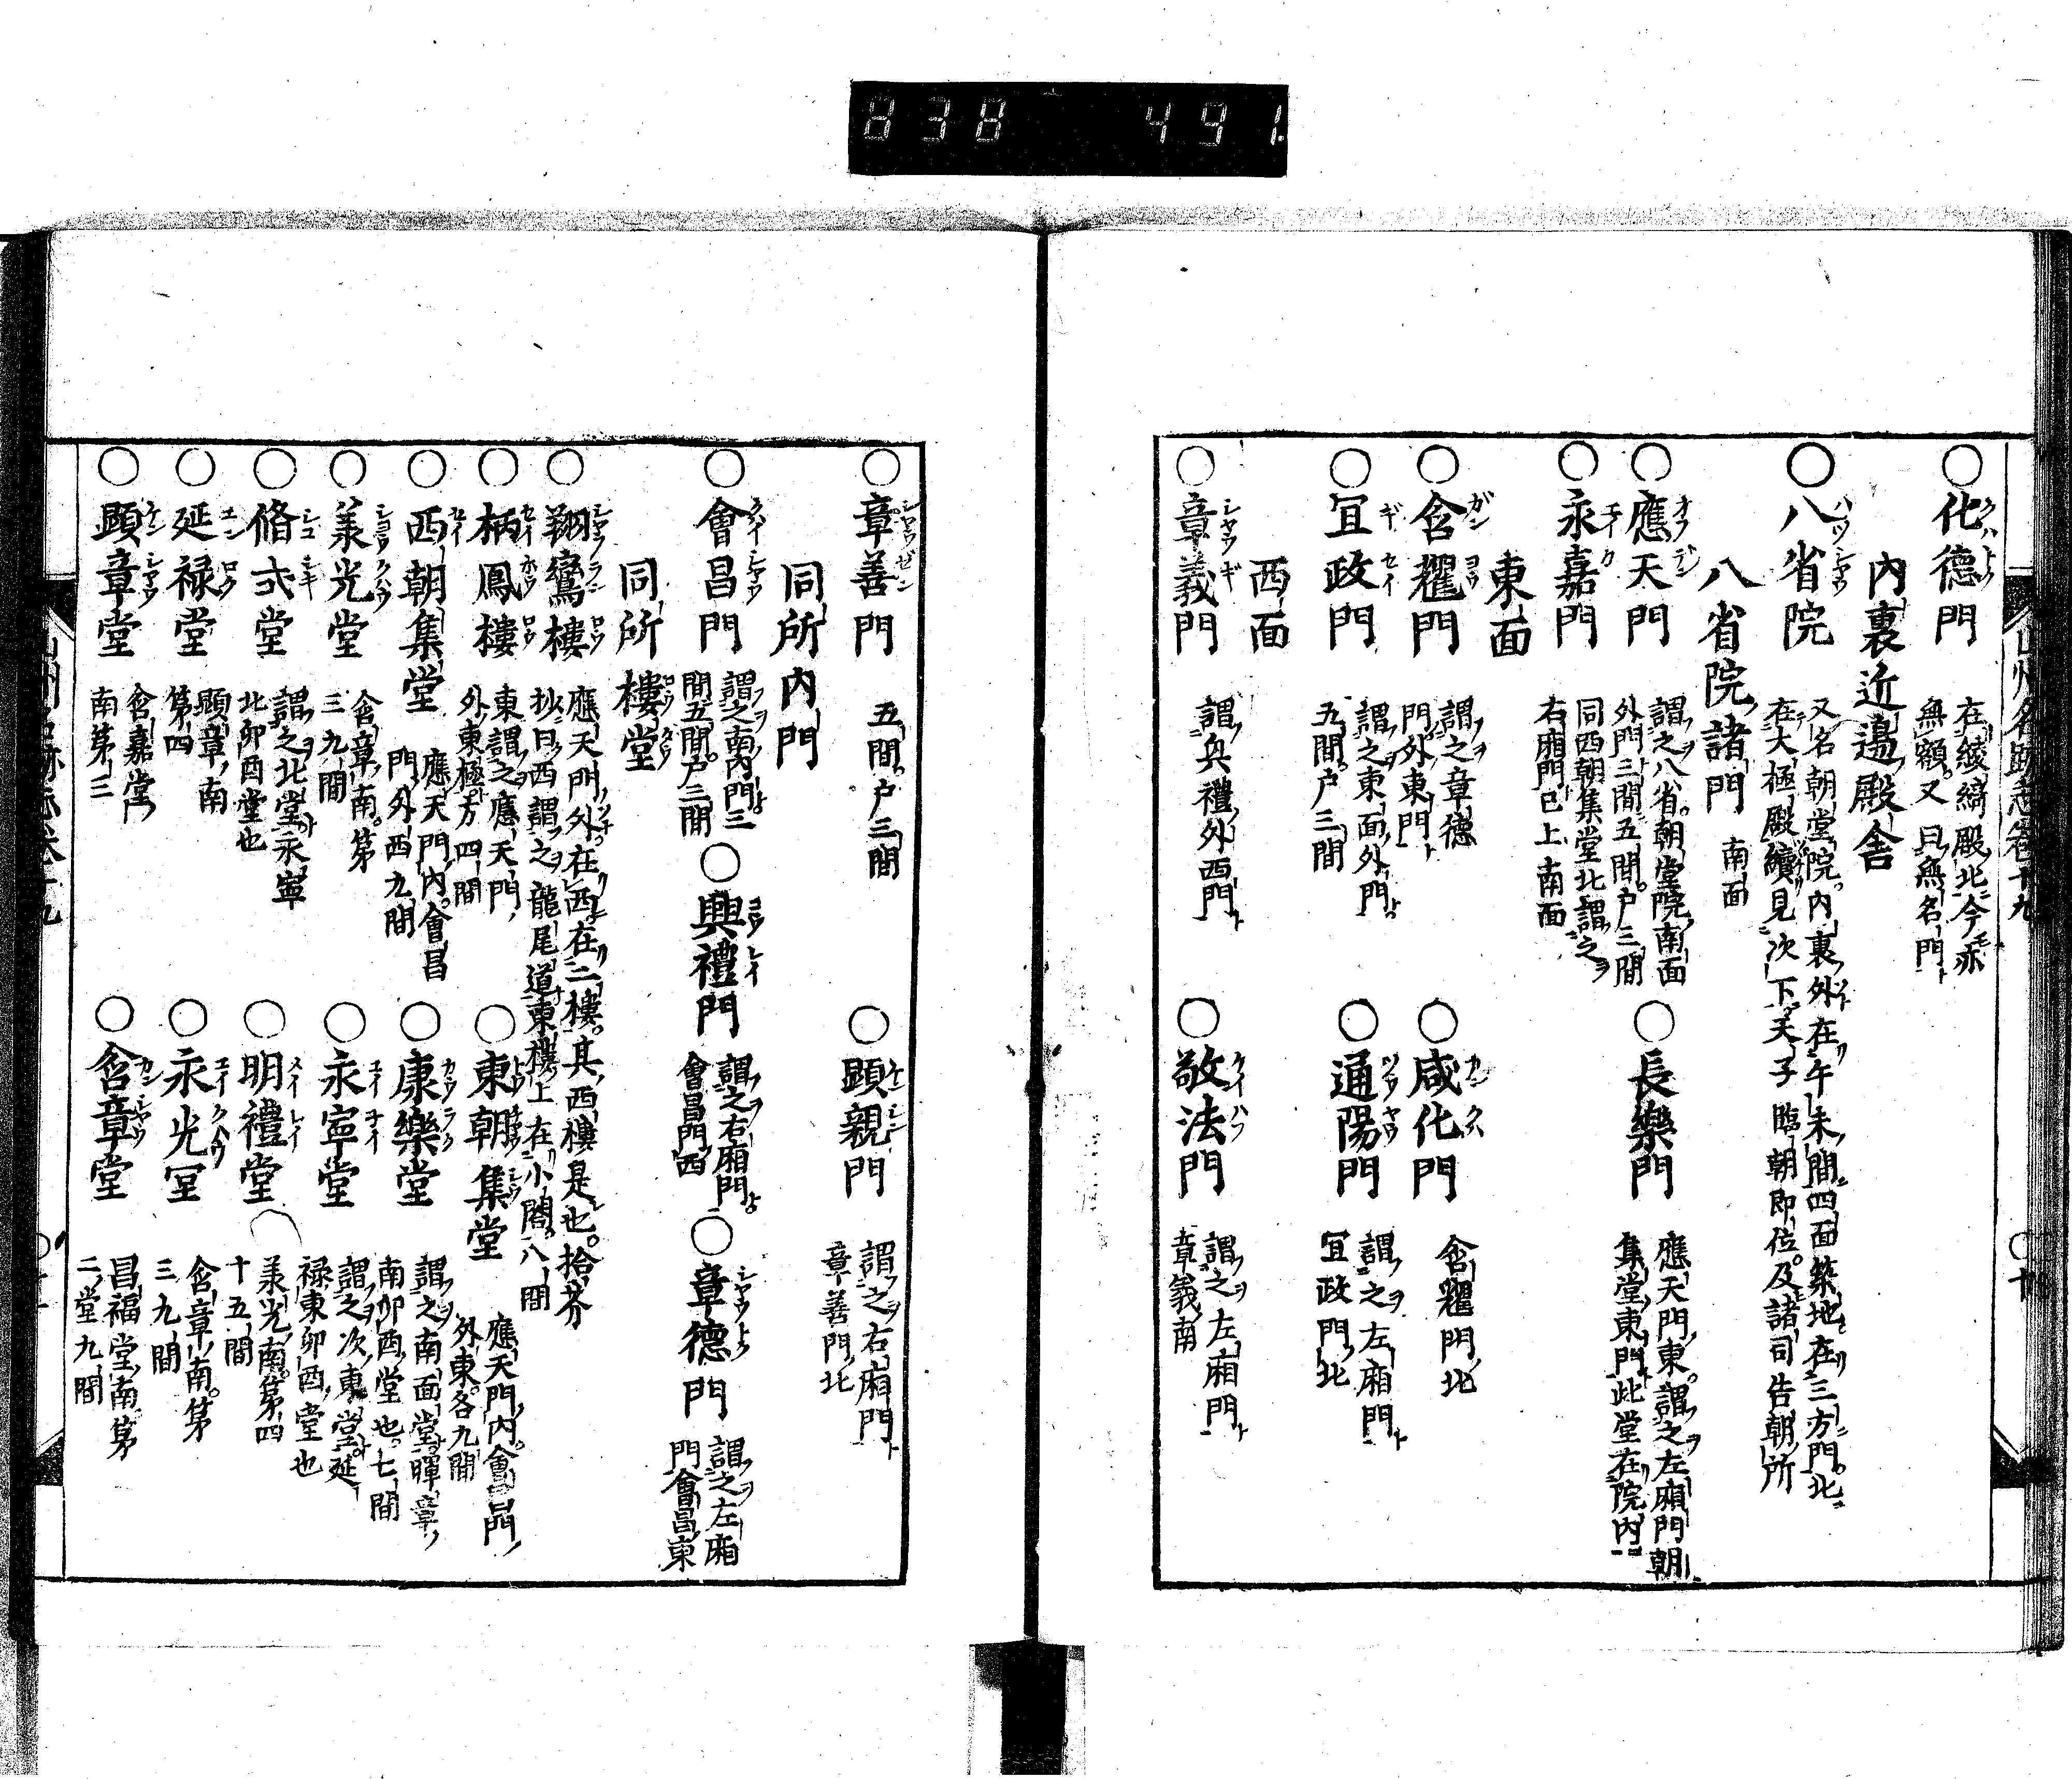 838 491.
○化德門 在綾綺殿北今亦
無額又曰無名門
内裏近邊殿舎
○八省院 又名朝堂院内裏外在午未間四面築地在三方門北
在大極殿續見次下天子臨朝即位及諸司告朝所
八省院諸門 南面
○應天門 謂之八省朝堂院南面
外門三間五間戸三間
○長樂門 應天門東謂之左廂門朝
集堂東門此堂在院内
○永嘉門 同西朝集堂北謂之
右廂門已上南面
東面
○含耀門 謂之章德
門外東門
○咸化門 含耀門北
○宜政門 謂之東面外門
五間戸三間
○通陽門 謂之左廂門
宜政門北
西面
○章義門 謂兵禮外西門
○敬法門 謂之左廂門
章義南
○章善門 五間戸三間
○顕親門 謂之右廂門
章善門北
同所内門
○會昌門 謂之南内門三
間五間戸三間
○興禮門 謂之右廂門
會昌門西
○章德門 謂之左廂
門會昌東
同所樓堂
○翔鸞樓 應天門外在西在二樓其西樓是也拾芥
抄曰西謂之龍尾道東樓上在小閣八間
○柄鳳樓 東謂之應天門
外東極方四間
○東朝集堂 應天門内會昌門
外東各九間
○西朝集堂 應天門内會昌
門外西九間
○康樂堂 謂之南面堂暉章
南卯酉堂也七間
○義光堂 含章南第
三九間
○永寧堂 謂之次東堂延
禄東卯酉堂也
○脩式堂 謂之北堂永寧
北卯酉堂也
○明禮堂 義光南第四
十五間
○延禄堂 顕章南
第四
○永光堂 含章南第
三九間
○顕章堂 含嘉堂
南第三
○含章堂 昌福堂南第
二堂九間